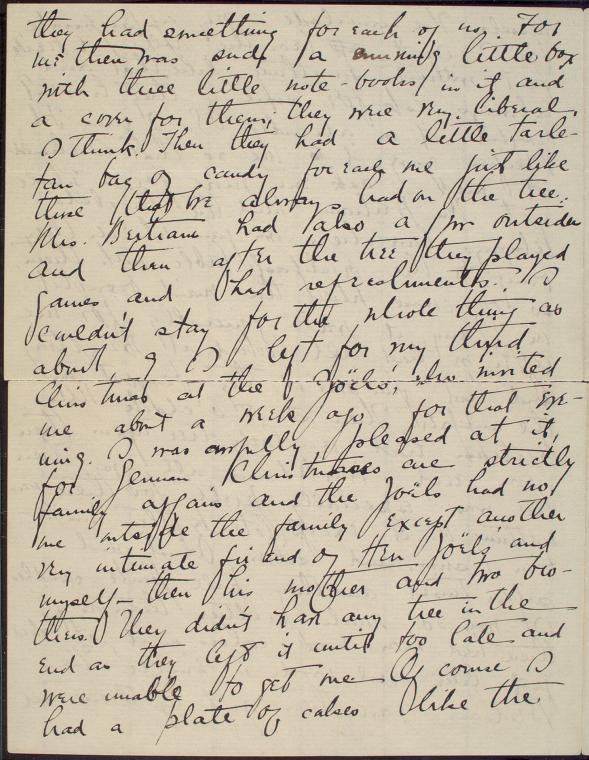 they had something for each of us. For
me there was such a cunning little box
with three little note-books in it and
a cover for them; they were very liberal
I think. Then they had a little tarle-
tan bag of candy for each one just like
those that we always had on the tree.
Mrs. Bertram had also a few outsiders
and then after the tree they played
games and had refreshments. I
couldn't stay for the whole thing as
about 9 I left for my third
Christmas at the Joëls', who invited
me about a week ago for that eve-
ning. I was awfully pleased at it,
for German Christmases are strictly
family affairs and the Joëls had no
one outside the family except another
very intimate friend of Herr Joëls and
myself – then his mother and two bro-
thers. They didn't have any tree in the
end as they left it until too late and
were unable to get one. Of course I
had a plate of cakes like the